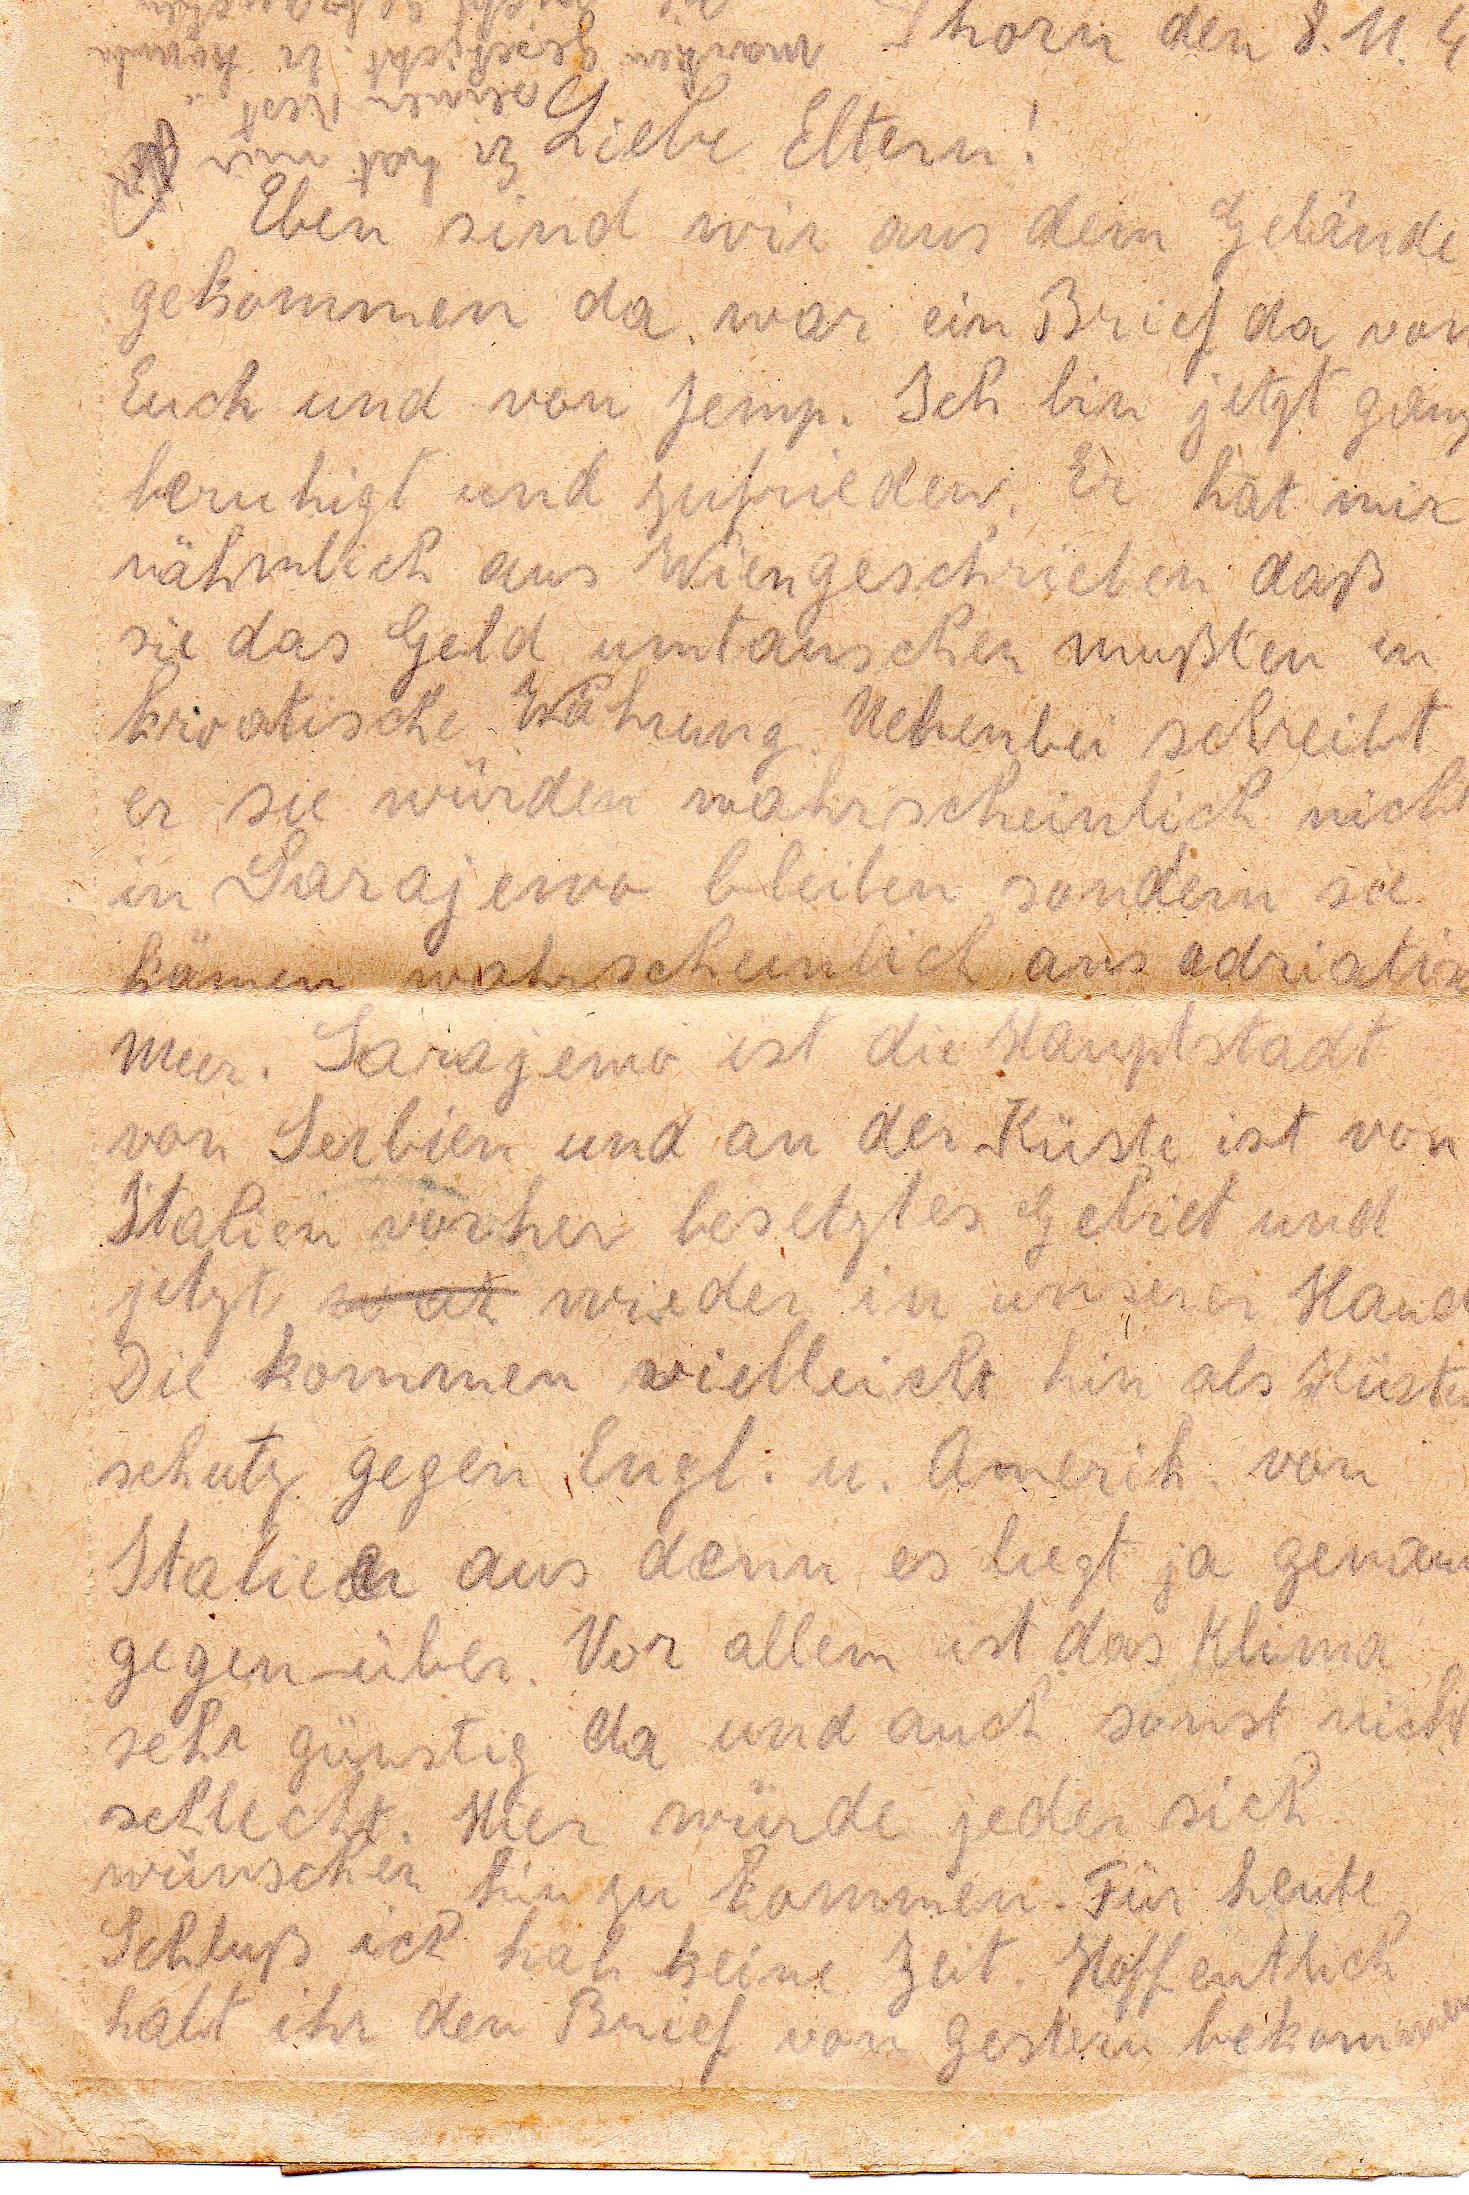 Thorn den 8. 11. 4
Liebe Eltern!
Eben sind wir aus dem Gelände
gekommen da war ein Brief da von
Euch und von Jemp. Ich bin jetzt ganz
beruhigt und zufrieden. Er hat mir
nähmlich aus Wien geschrieben daß
sie das Geld umtauschen mußten in
kroatische Währung. Nebenbei schreibt
er sie würden wahrscheinlich nicht
in Sarajewo bleiben sondern sie
kämen wahrscheinlich ans adriatis
Meer. Sarajewo ist die Hauptstadt
von Serbien und an der Küste ist von
Italien vorher besetztes Gebiet und
jetzt wieder in unserer Hand
Die kommen vielleicht hin als Küsten
schutz gegen Engl. u. Amerik. von
Italien aus denn es liegt ja genau
gegen-über. Vor allem ist das Klima
sehr günstig da und auch sonst nicht
schlecht. Hier würde jeder sich
wünschen hin zu kommen. Für heute
Schluß ich hab keine Zeit. Hoffentlich
habt ihr den Brief von gestern bekommen
Er hat mir
seinen Rest
geschickt. Er konnte